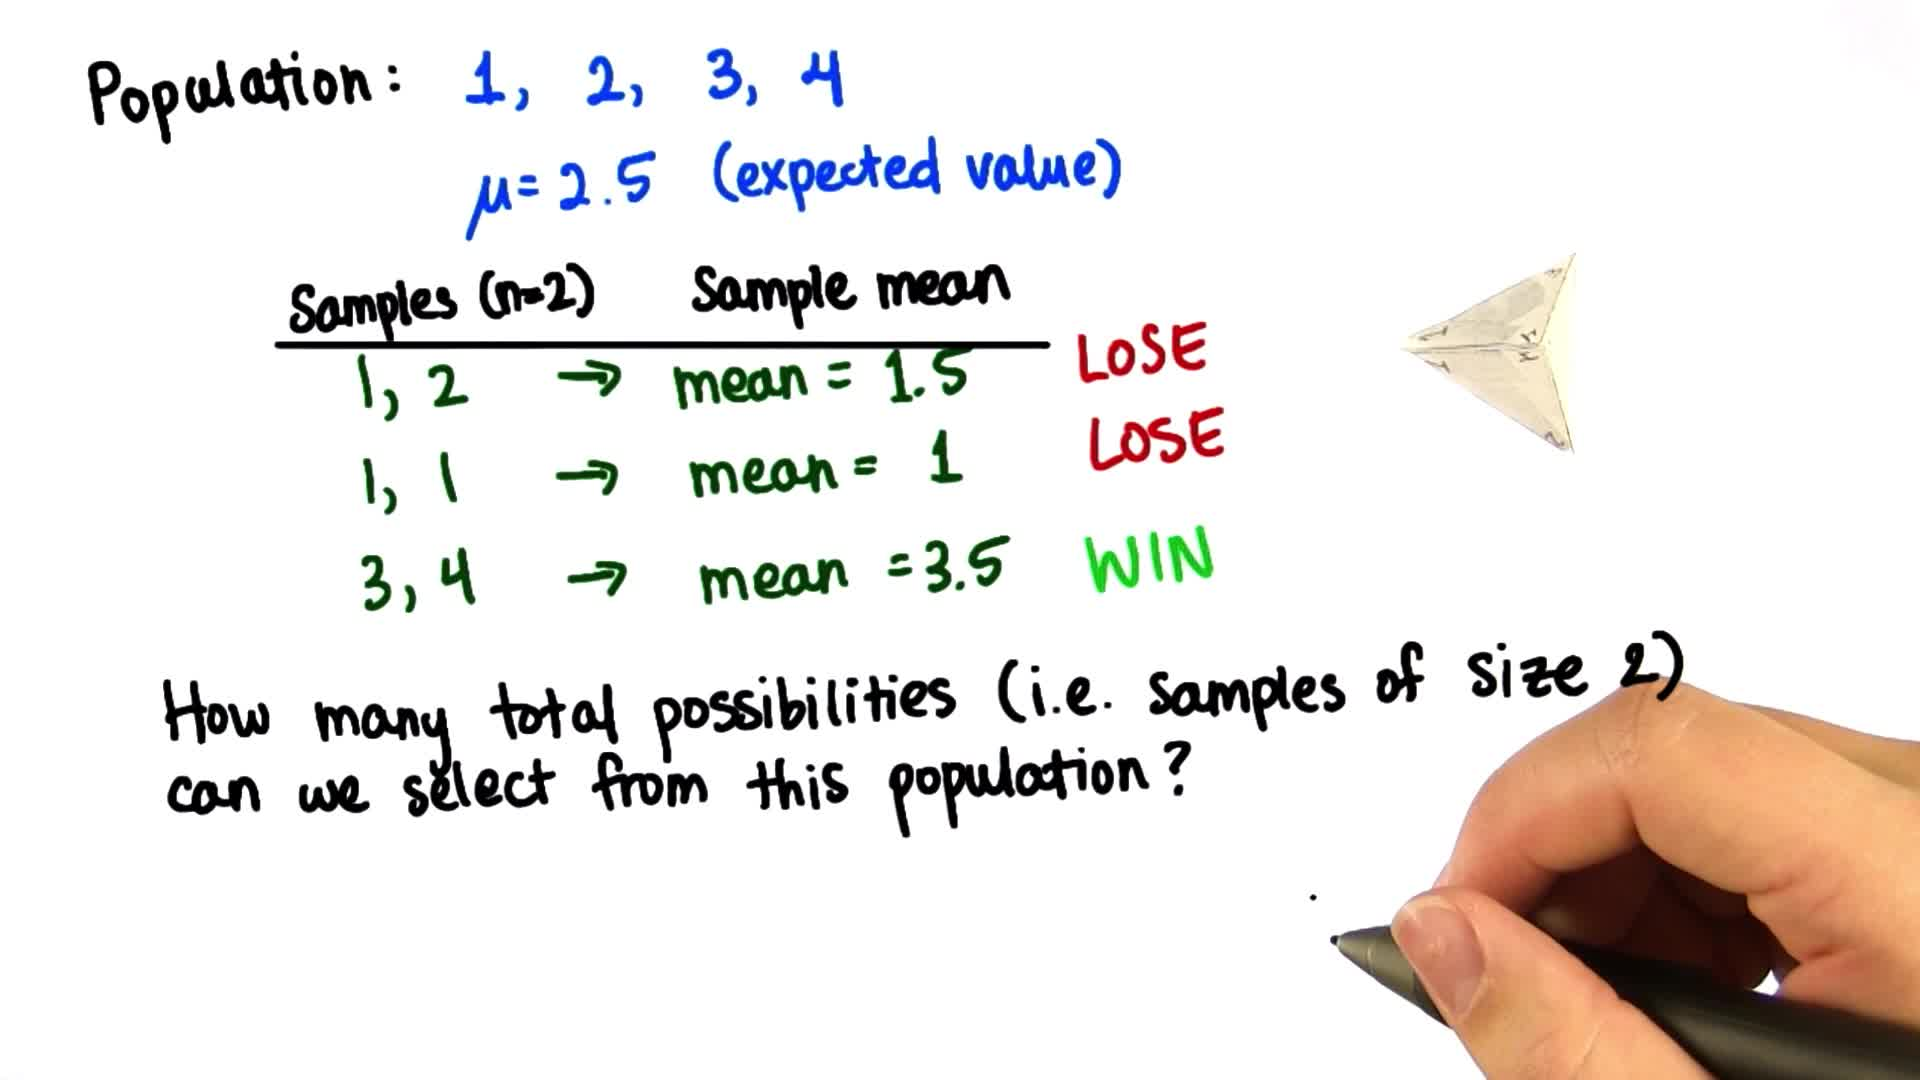 Population: 1, 2, 3, 4
μ=2.5 (expected value)
Samples (n=2) Sample mean
1, 2 → mean = 1.5 LOSE
1, 1 → mean = 1 LOSE
3, 4 → mean =3.5 WIN
How many total possibilities (i.e. samples of size 2)
can we select from this population?